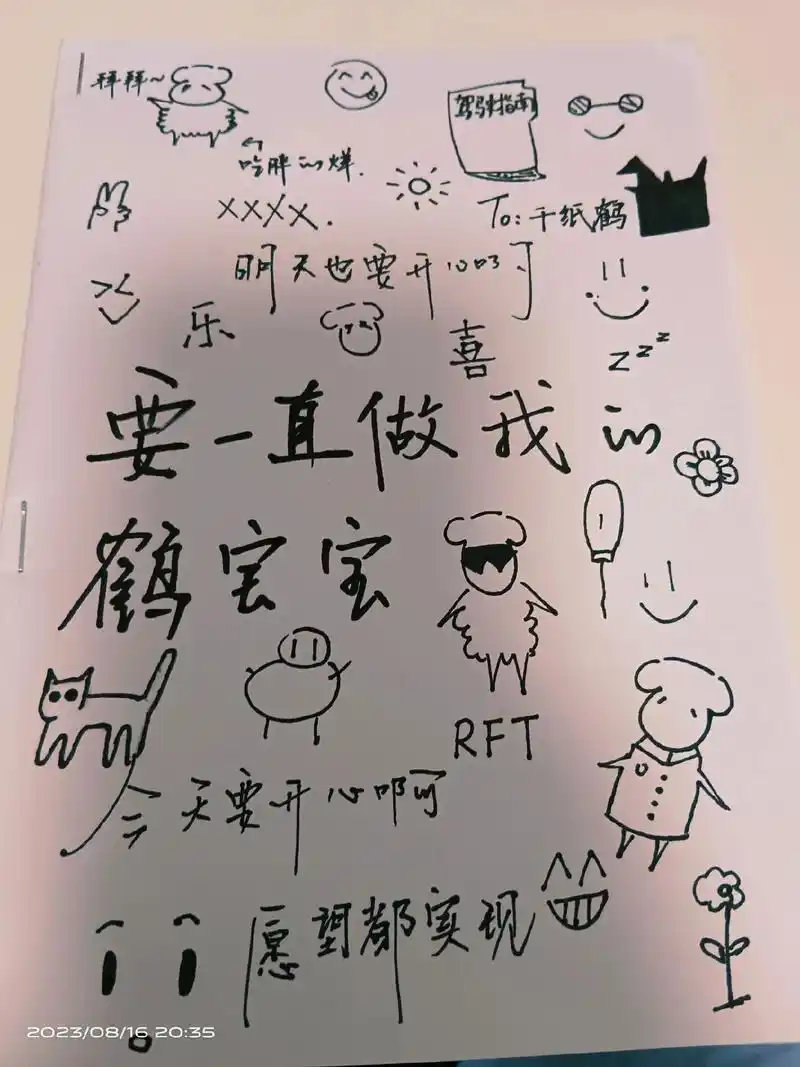 拜拜~
驾驶指南
吃胖的烊.
XXXX.
To: 千纸鹤
明天也要开心呀
乐
喜
zzz
要一直做我的
鹤宝宝
RFT
今天要开心啊
愿望都实现
2023/08/16 20:35